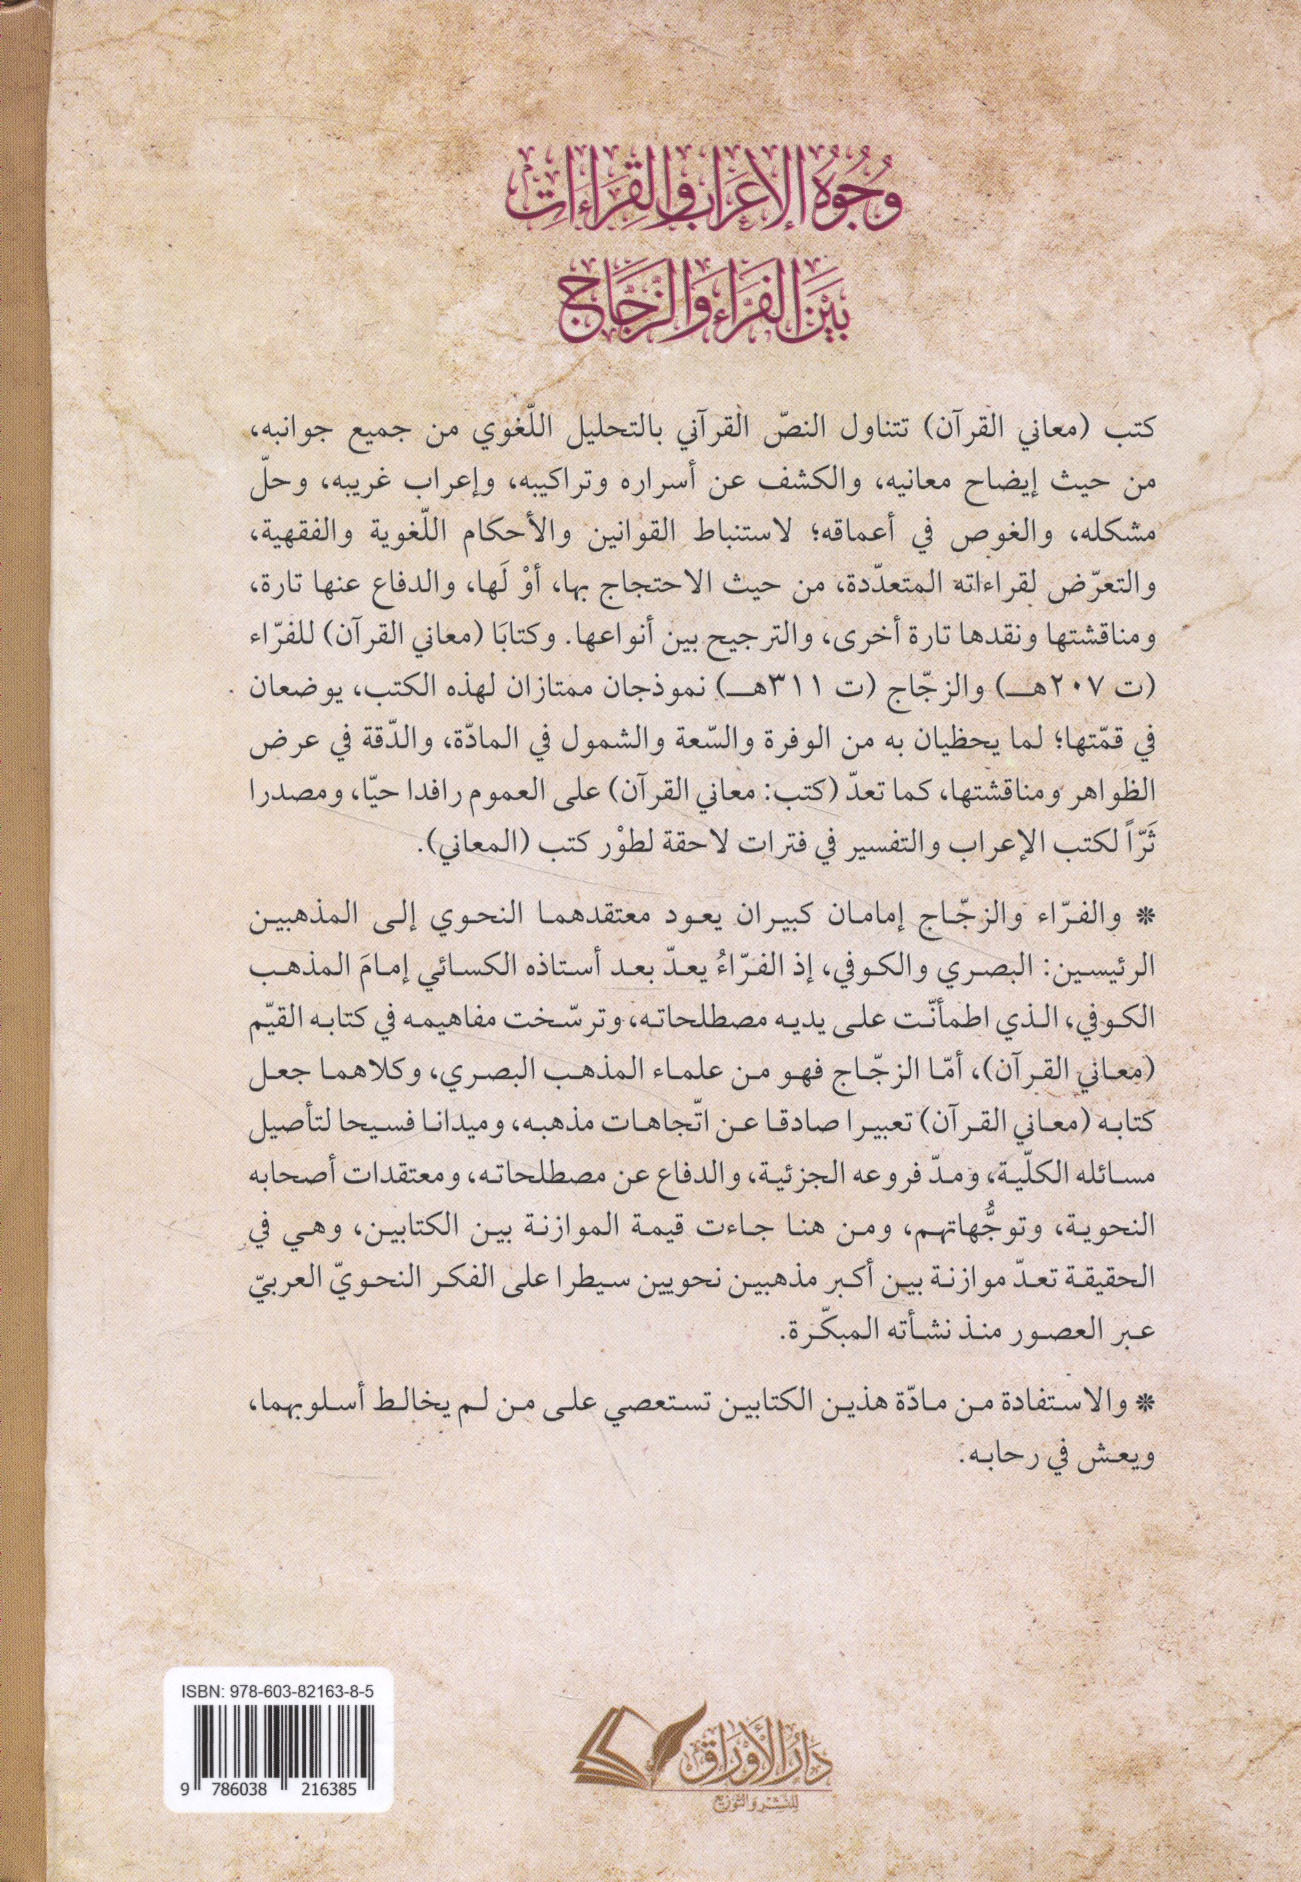 وُجُوهُ الإِعْرَابِ وَالقِرَاءَاتِ
بَيْنَ الفَرَّاءِ وَالزَّجَّاجِ
كتب (معاني القرآن) تتناول النصّ القرآني بالتحليل اللّغوي من جميع جوانبه،
من حيث إيضاح معانيه، والكشف عن أسراره وتراكيبه، وإعراب غريبه، وحلّ
مشكله، والغوص في أعماقه؛ لاستنباط القوانين والأحكام اللّغوية والفقهية،
والتعرّض لقراءاته المتعدّدة، من حيث الاحتجاج بها، أوْ لَها، والدفاع عنها تارة،
ومناقشتها ونقدها تارة أخرى، والترجيح بين أنواعها. وكتابَا (معاني القرآن) للفرّاء
(ت ٢٠٧هـ) والزجّاج (ت ٣١١هـ) نموذجان ممتازان لهذه الكتب، يوضعان
في قمّتها؛ لما يحظيان به من الوفرة والسّعة والشمول في المادّة، والدّقة في عرض
الظواهر ومناقشتها، كما تعدّ (كتب: معاني القرآن) على العموم رافدا حيّا، ومصدرا
ثَرّاً لكتب الإعراب والتفسير في فترات لاحقة لطوْر كتب (المعاني).
* والفرّاء والزجّاج إمامان كبيران يعود معتقدهما النحوي إلى المذهبين
الرئيسين: البصري والكوفي، إذ الفرّاءُ يعدّ بعد أستاذه الكسائي إمامَ المذهب
الكوفي، الذي اطمأنّت على يديه مصطلحاته، وترسّخت مفاهيمه في كتابه القيّم
(معاني القرآن)، أمّا الزجّاج فهو من علماء المذهب البصري، وكلاهما جعل
كتابه (معاني القرآن) تعبيرا صادقا عن اتّجاهات مذهبه، وميدانا فسيحا لتأصيل
مسائله الكلّية، ومدّ فروعه الجزئية، والدفاع عن مصطلحاته، ومعتقدات أصحابه
النحوية، وتوجُّهاتهم، ومن هنا جاءت قيمة الموازنة بين الكتابين، وهي في
الحقيقة تعدّ موازنة بين أكبر مذهبين نحويين سيطرا على الفكر النحويّ العربيّ
عبر العصور منذ نشأته المبكّرة.
* والاستفادة من مادّة هذين الكتابين تستعصي على من لم يخالط أسلوبهما،
ويعش في رحابه.
ISBN: 978-603-82163-8-5
9 786038 216385
دَارُ الأَوْرَاق
للنشر والتوزيع